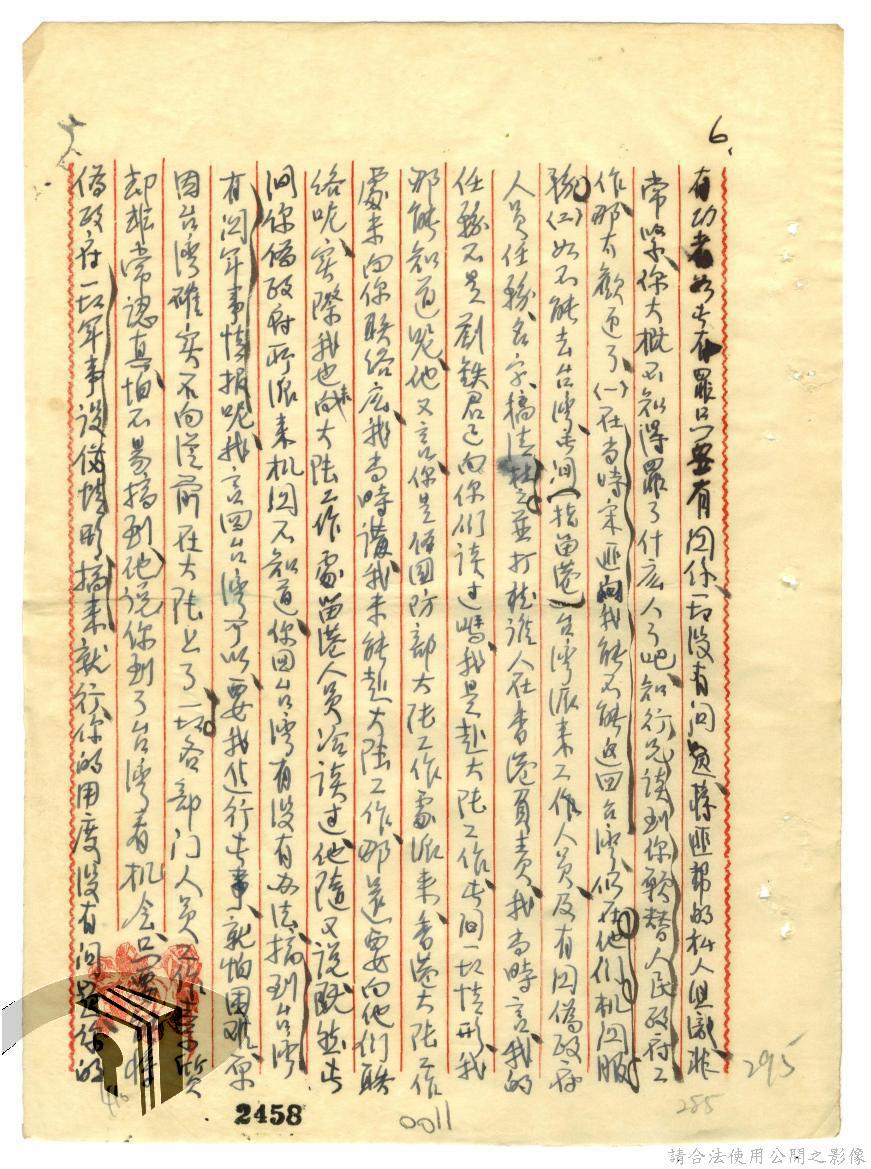 6.
有功者如去有罪只要有関係一切没有问題蔣匪幫的私人恩讎非
常緊你大概不知得罪了什広人了吧知行兄談到你願替人民政府工
作那太歡迎了(一)在当時宋匪向我能不能返回台湾仍在他们机関服
務(二)如不能去台湾去调(指留港)台湾派来工作人員及有関偽政府
人員任務名字搞清楚並打枝誰人在香港負責我当時言我的
任務不是劉鉄君已向你们談过嗎我是赴大陸工作去间一切情形我
那能知道呢他又言你是偽國防部大陸工作處派来香港大陸工作
處未向你联络広我当時講我未能赴大陸工作那還要向他们联
络呢实際我也向大陸工作處留港人員洽談过他隨又说既然去
调你偽政府所派来机関不知道你回台湾有没有办法搞到台湾
有関军事情报呢我言回台湾可以要我進行去事就怕困难原
因台湾確实不向從前在大陸上了一切各部门人員工作
却非常認真怕不易搞到他说你到了台湾看机会只要
偽政府一切军事设備情形搞来就行你的用度没有问題你的
295
285
2458
0011
請合法使用公開之影像